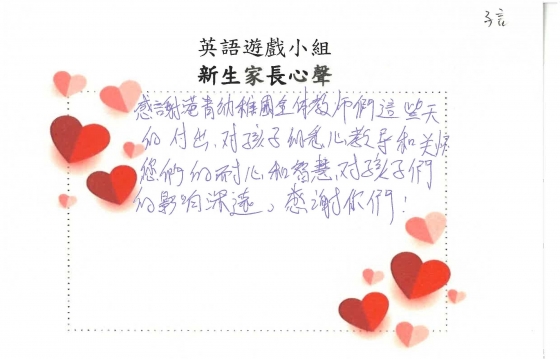 子言
英語遊戲小組
新生家長心聲
感謝港青幼稚園全体教师們這些天
的付出，对孩子的悉心教导和关怀
您們的耐心和智慧，对孩子們
的影响深遠。感謝你們！